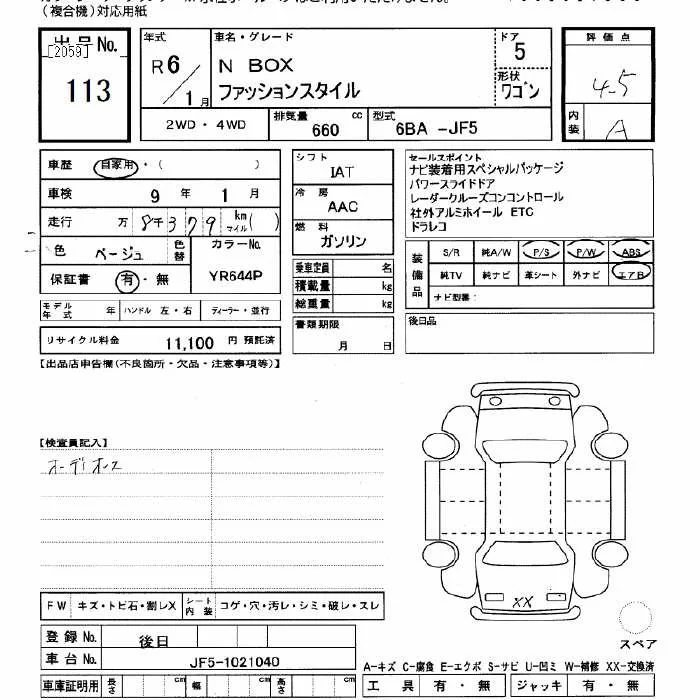 (複合機)対応用紙
出品No.
[2059]
113
年式
R6/1月
車名・グレード
N BOX
ファッションスタイル
ドア
5
形状
ワゴン
評価点
4.5
内装
A
2WD・4WD
排気量 660 cc
型式 6BA -JF5
車歴 自家用・( )
車検 9年 1月
走行 万 8千379 km マイル( )
色 ベージュ 色替
カラーNo. YR644P
保証書 有・無
モデル年式 年 ハンドル 左・右 ディーラー・並行
リサイクル料金 11,100 円 預託済
シフト
IAT
冷房
AAC
燃料
ガソリン
乗車定員 名
積載量 kg
総重量 kg
書類期限
月 日
セールスポイント
ナビ装着用スペシャルパッケージ
パワースライドドア
レーダークルーズコンコントロール
社外アルミホイール ETC
ドラレコ
装備品
S/R 純A/W P/S P/W ABS
純TV 純ナビ 革シート 外ナビ エアB
ナビ型番:
後日品
【出品店申告欄(不良箇所・欠品・注意事項等)】
【検査員記入】
XX
スペア
FW キズ・トビ石・割レX
シート内装 コゲ・穴・汚レ・シミ・破レ・スレ
登録No. 後日
車台No. JF5-1021040
車庫証明用 長さ cm 幅 cm 高さ cm
A-キズ C-腐食 E-エクボ S-サビ U-凹ミ W-補修 XX-交換済
工具 有・無 ジャッキ 有・無